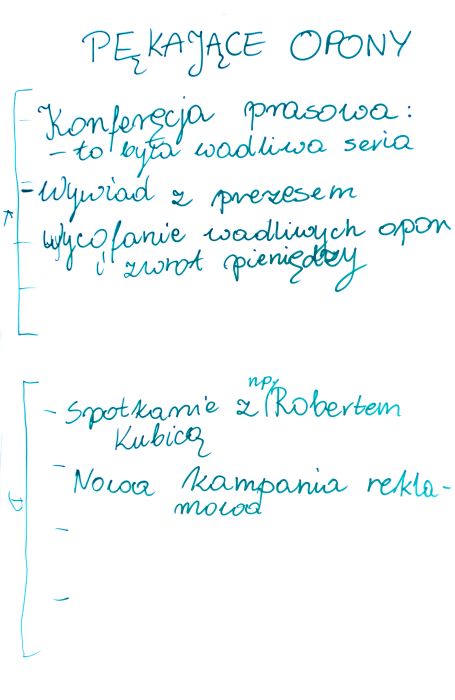 PĘKAJĄCE OPONY
Konferęcja prasowa:
- to była wadliwa seria
- Wywiad z prezesem
wycofanie wadliwych opon
i zwrot pieniędzy
- Spotkanie z np. Robertem
Kubicą
- Nowa kampania rekla-
mowa